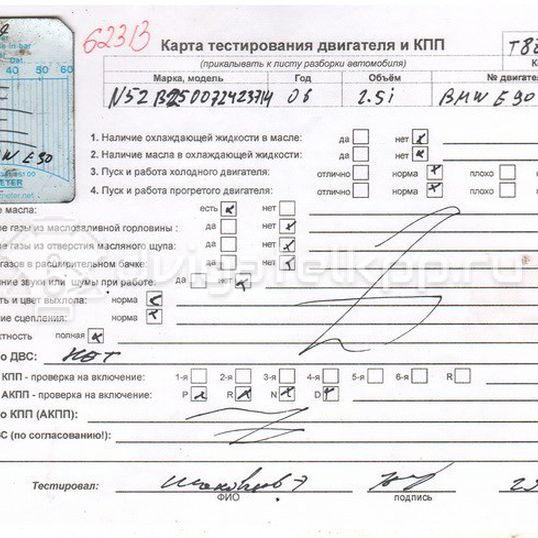 62313
Карта тестирования двигателя и КПП
(прикалывать к листу разборки автомобиля)
Марка, модель Год Объём № двигате
N52 B25 0072423714 06 2.5i BMW E90
40 50 60
1. Наличие охлаждающей жидкости в масле: да нет x
2. Наличие масла в охлаждающей жидкости: да нет x
3. Пуск и работа холодного двигателя: отлично норма x плохо
4. Пуск и работа прогретого двигателя: отлично норма x плохо
е масла: есть x нет
е газы из маслозаливной горловины : да нет x
е газы из отверстия масляного щупа: да нет x
газов в расширительном бачке: да нет x
ние звуки или шумы при работе: да нет x
ть и цвет выхлопа: норма x
ние сцепления: норма x
ктность полная x
о ДВС: нет
КПП - проверка на включение: 1-я 2-я 3-я 4-я 5-я 6-я R
АКПП - проверка на включение: P x R x N x D x
о КПП (АКПП):
С (по согласованию!):
Тестировал:
ФИО подпись